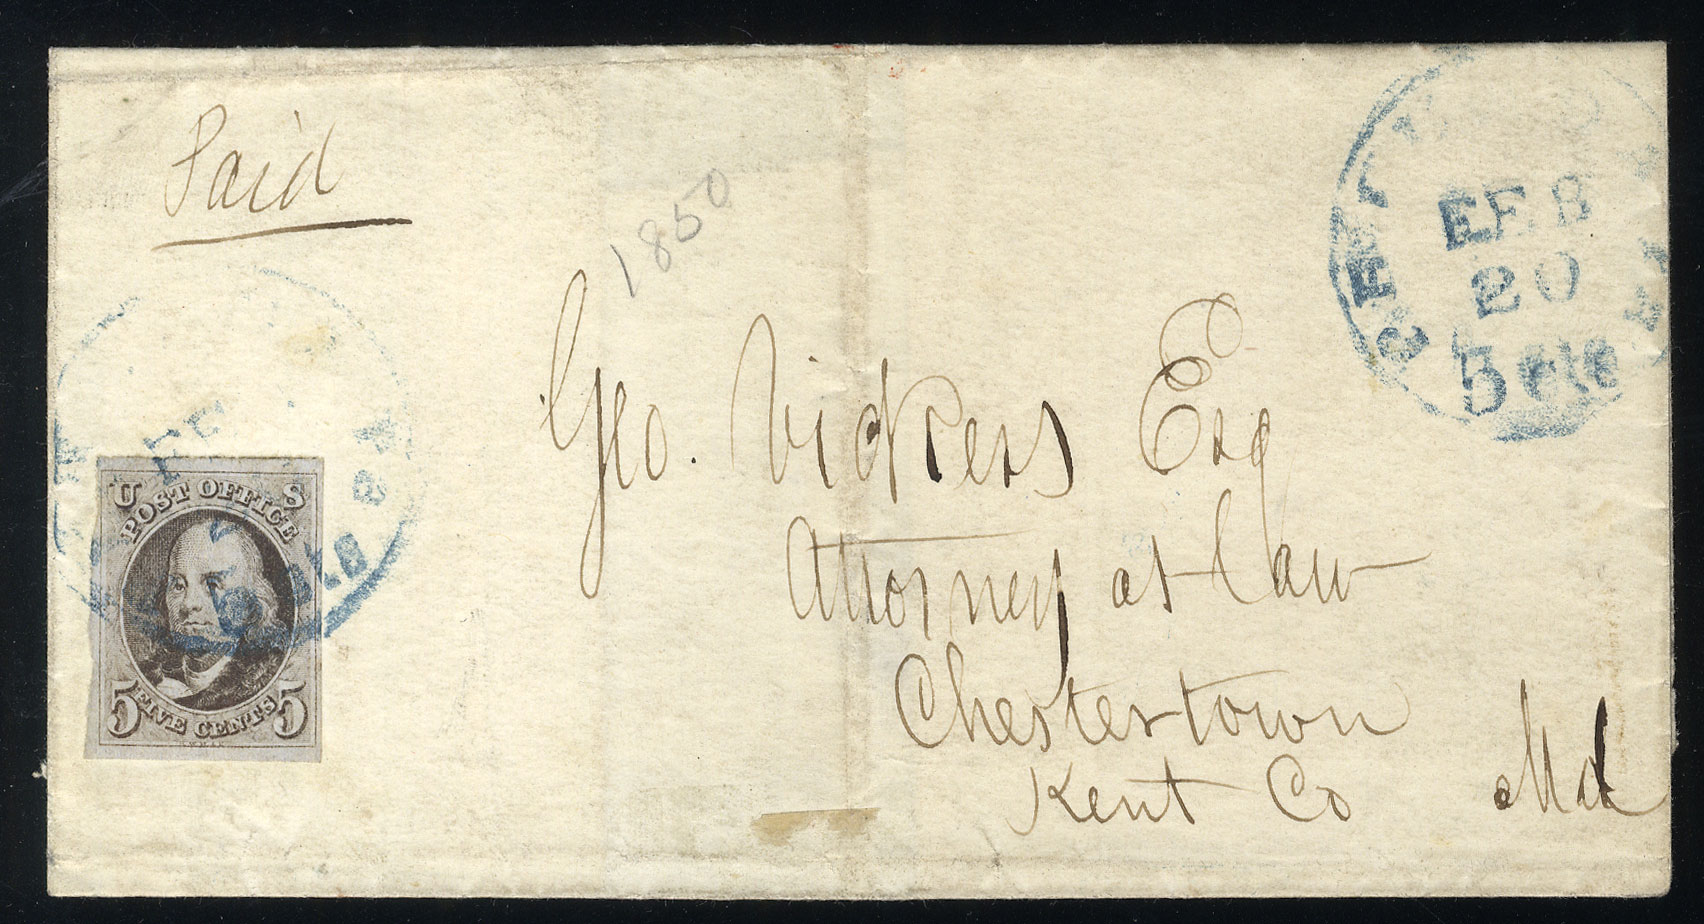 Paid
1850
FEB
20
5 cts
Geo. Vickers Esq
Attorney at Law
Chestertown
Kent Co Md
FE
5 cts
U S
POST OFFICE
FIVE CENTS
5 5